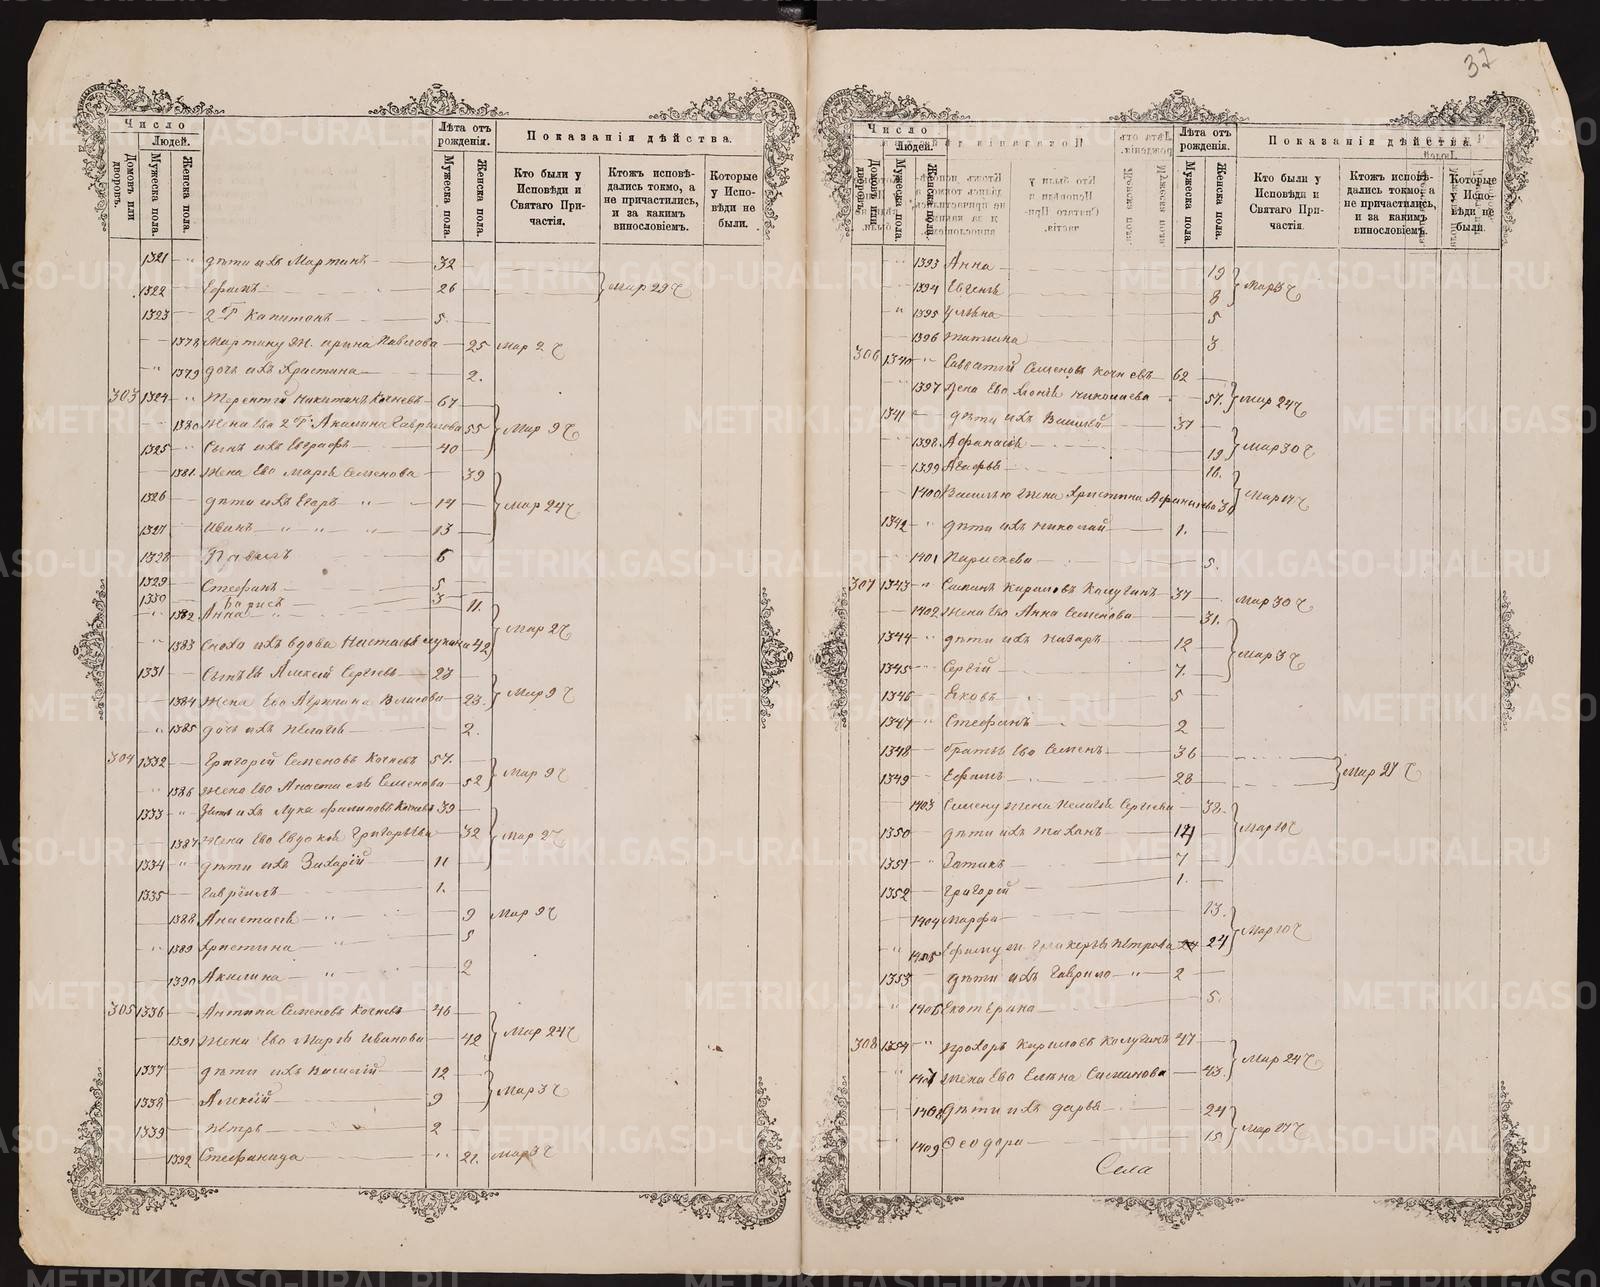 Число
Людей.
Домовъ или дворовъ.
Мужеска пола.
Женска пола.
Лѣта отъ рожденія.
Мужеска пола.
Женска пола.
Показанія дѣйства.
Кто были у Исповѣди и Святаго Причастія.
Ктожъ исповѣдались токмо, а не причастились, и за какимъ винословіемъ.
Которые у Исповѣди не были.
1321 дѣти ихъ Мартинъ 32
1322 Ефимъ 26 Мар 29 Ч
1323 2 Г Капитонъ 5
1378 Мартину Ж. Ирина Павлова 25 Мар 2 Ч
1379 дочь ихъ Христина 2.
303 1324 Терентій Никитинъ Кочневъ 67
1380 Жена Ево 2 Г Акилина Гаврилова 55 Мар 9 Ч
1325 Сынъ ихъ Евграфъ 40
1381 Жена Ево Марѳа Семенова 39
1326 дѣти ихъ Егоръ 14 Мар 24 Ч
1327 Иванъ 13
1328 Павелъ 6
1329 Стефанъ 5
1330 Борисъ 3
1382 Анна 11.
1383 Сноха ихъ вдова Настасья Лукина 42 Мар 2 Ч
1331 Сынъ Ея Алексій Сергѣевъ 23
1384 Жена Ево Агрипина Власова 23. Мар 9 Ч
1385 дочь ихъ Пелагія 2.
304 1332 Григорій Семеновъ Кочневъ 57.
1386 Жена Ево Анастасія Семенова 52 Мар 9 Ч
1333 Зять ихъ Лука Филиповъ Кочневъ 39
1387 Жена Ево Евдокія Григорьева 32 Мар 2 Ч
1334 дѣти ихъ Захарій 11
1335 Гавріилъ 1.
1388 Анастасія 9 Мар 9 Ч
1389 Христина 5
1390 Акилина 2
305 1336 Антипа Семеновъ Кочневъ 46
1391 Жена Ево Марѳа Иванова 42 Мар 24 Ч
1337 дѣти ихъ Василій 12
1338 Алексій 9 Мар 3 Ч
1339 Петръ 2
1392 Стефанида 21. Мар 3 Ч
37
Число
Людей.
Домовъ или дворовъ.
Мужеска пола.
Женска пола.
Лѣта отъ рожденія.
Мужеска пола.
Женска пола.
Показанія дѣйства.
Кто были у Исповѣди и Святаго Причастія.
Ктожъ исповѣдались токмо, а не причастились, и за какимъ винословіемъ.
Которые у Исповѣди не были.
1393 Анна 19
1394 Евгенія 8 Мар 3 Ч
1395 Ульяна 5
1396 Татиана 3
306 1340 Савватій Семеновъ Кочневъ 62
1397 Жена Ево Николаева 57. Мар 24 Ч
1341 дѣти ихъ Василій 31
1398 Афанасія 19 Мар 30 Ч
1399 Агафья 16.
1400 Василью Жена Христина Афанасьева 30 Мар Ч
1342 дѣти ихъ Николай 1.
1401 Параскева 5.
307 1343 Кириловъ Калугинъ 37 Мар 30 Ч
1402 Жена Ево Анна Семенова 31.
1344 дѣти ихъ Назаръ 12
1345 Сергій 7. Мар 3 Ч
1346 Яковъ 5
1347 Стефанъ 2
1348 братья Ево Семенъ 36
1349 Ефимъ 28 Мар 27 Ч
1403 Семену Жена Пелагія Сергѣева 38.
1350 дѣти ихъ 14 Мар 10 Ч
1351 Зотикъ 7
1352 Григорій 1.
1404 Марфа 13.
1405 Ефиму Ж. Гликерія Петрова 24 Мар 10 Ч
1353 дѣти ихъ Гаврило 2
1406 Екатерина 5.
308 1354 Прохоръ Кириловъ Калугинъ 47
1407 Жена Ево Елена 43. Мар 24 Ч
1408 дѣти ихъ Дарья 24
1409 Ѳеодора 15 Мар Ч
Села